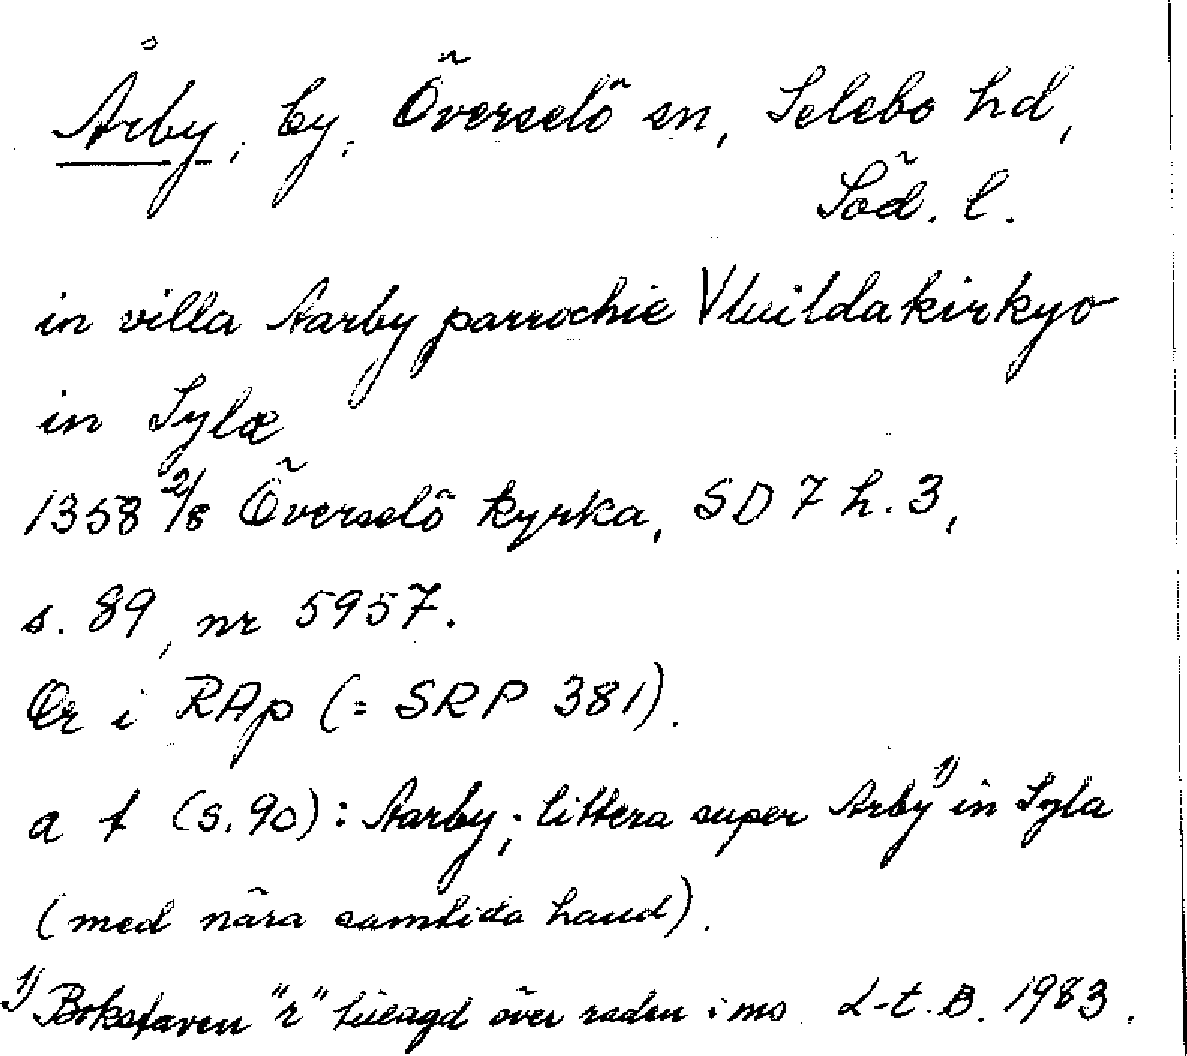 Årby, by, Överselö sn, Selebo hd,
Söd. l.
in villa Aarby parrochie Vluildakirkyo
in Sylæ
1358 2/8 Överselö kyrka, SD 7 h. 3,
s. 89, nr 5957.
Or i RAp (= SRP 381).
a t (s. 90): Aarby; littera super Arby 1) in Syla
(med nära samtida hand).
1) Bokstaven "r" tillagd över raden i ms. L-t. B. 1983.